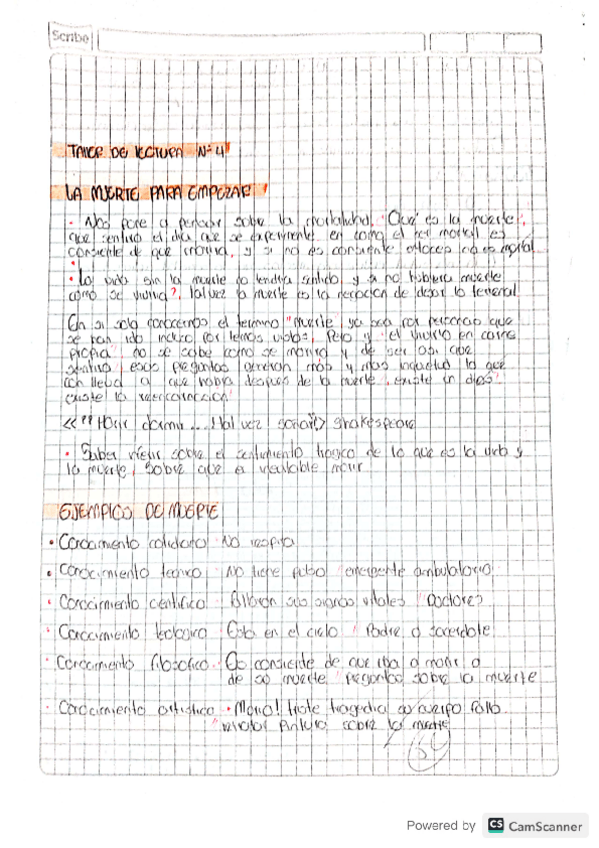 Scribe
TALLER DE LECTURA Nº 4
LA MUERTE PARA EMPEZAR
• Nos pone a pensar sobre la mortalidad. "Qué es la muerte",
que sentiria el dia que se experimente, en como el ser mortal es
consiente de que moriria, y si no es consiente entoces no es mortal.
• La vida sin la muerte no tendria sentido y si no hubiera muerte
como se viviria?, tal vez la muerte es la negacion de dejar lo terrenal.
En si solo conocemos el termino "muerte" ya sea por personas que
se han ido incluso por verlos, Pero y "el vivirlo en carne
propia" no se sabe como se moriria y de ser asi que
sentiria, esas preguntas generan más y más inquietud lo que
conlleva a que habra despues de la muerte, existe un dios
existe la reencarnacion
<< "Morir, dormir... tal vez soñar" >> Shakespeare
• Saber vivir sobre el sentimiento tragico de lo que es la vida y
la muerte, Sobre que es inevitable morir
EJEMPLOS DE MUERTE
• Conocimiento cotidiano: No respira
• Conocimiento tecnico: No tiene pulso "emergente ambulatorio
• Conocimiento cientifico: Fallaron sus organos vitales "Doctores
• Conocimiento teologico: Esta en el cielo "Padre o sacerdote
• Conocimiento filosofico: Es consiente de que iba a morir o
de su muerte "Preguntas sobre la muerte
• Conocimiento artistico • Murio! triste tragedia su cuerpo fallo.
Pintura sobre la muerte
Powered by CS CamScanner